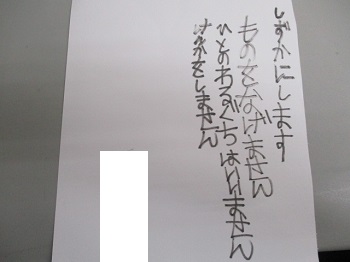 しずかにします
ものをなげません
ひとのわるぐちはいいません
けんかをしません